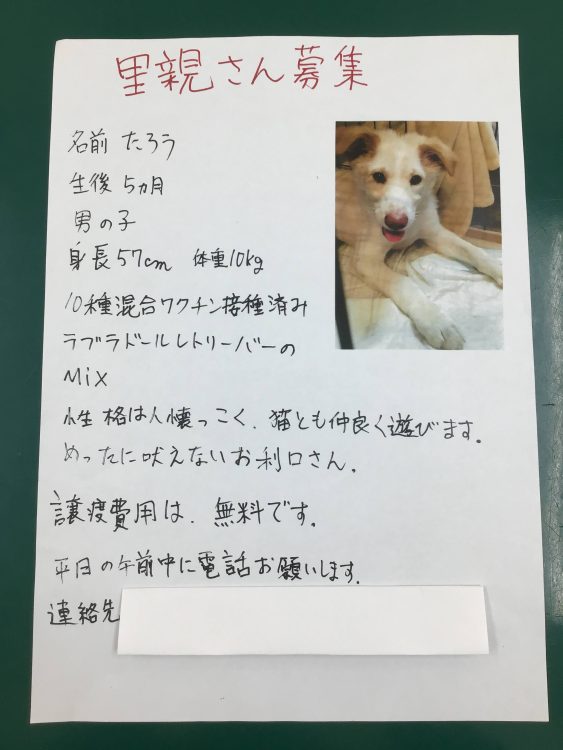 里親さん募集
名前 たろう
生後 5ヵ月
男の子
身長57cm 体重10kg
10種混合ワクチン接種済み
ラブラドールレトリーバーの
Mix
性格は人懐っこく、猫とも仲良く遊びます。
めったに吠えないお利口さん。
譲渡費用は、無料です。
平日の午前中に電話お願いします。
連絡先